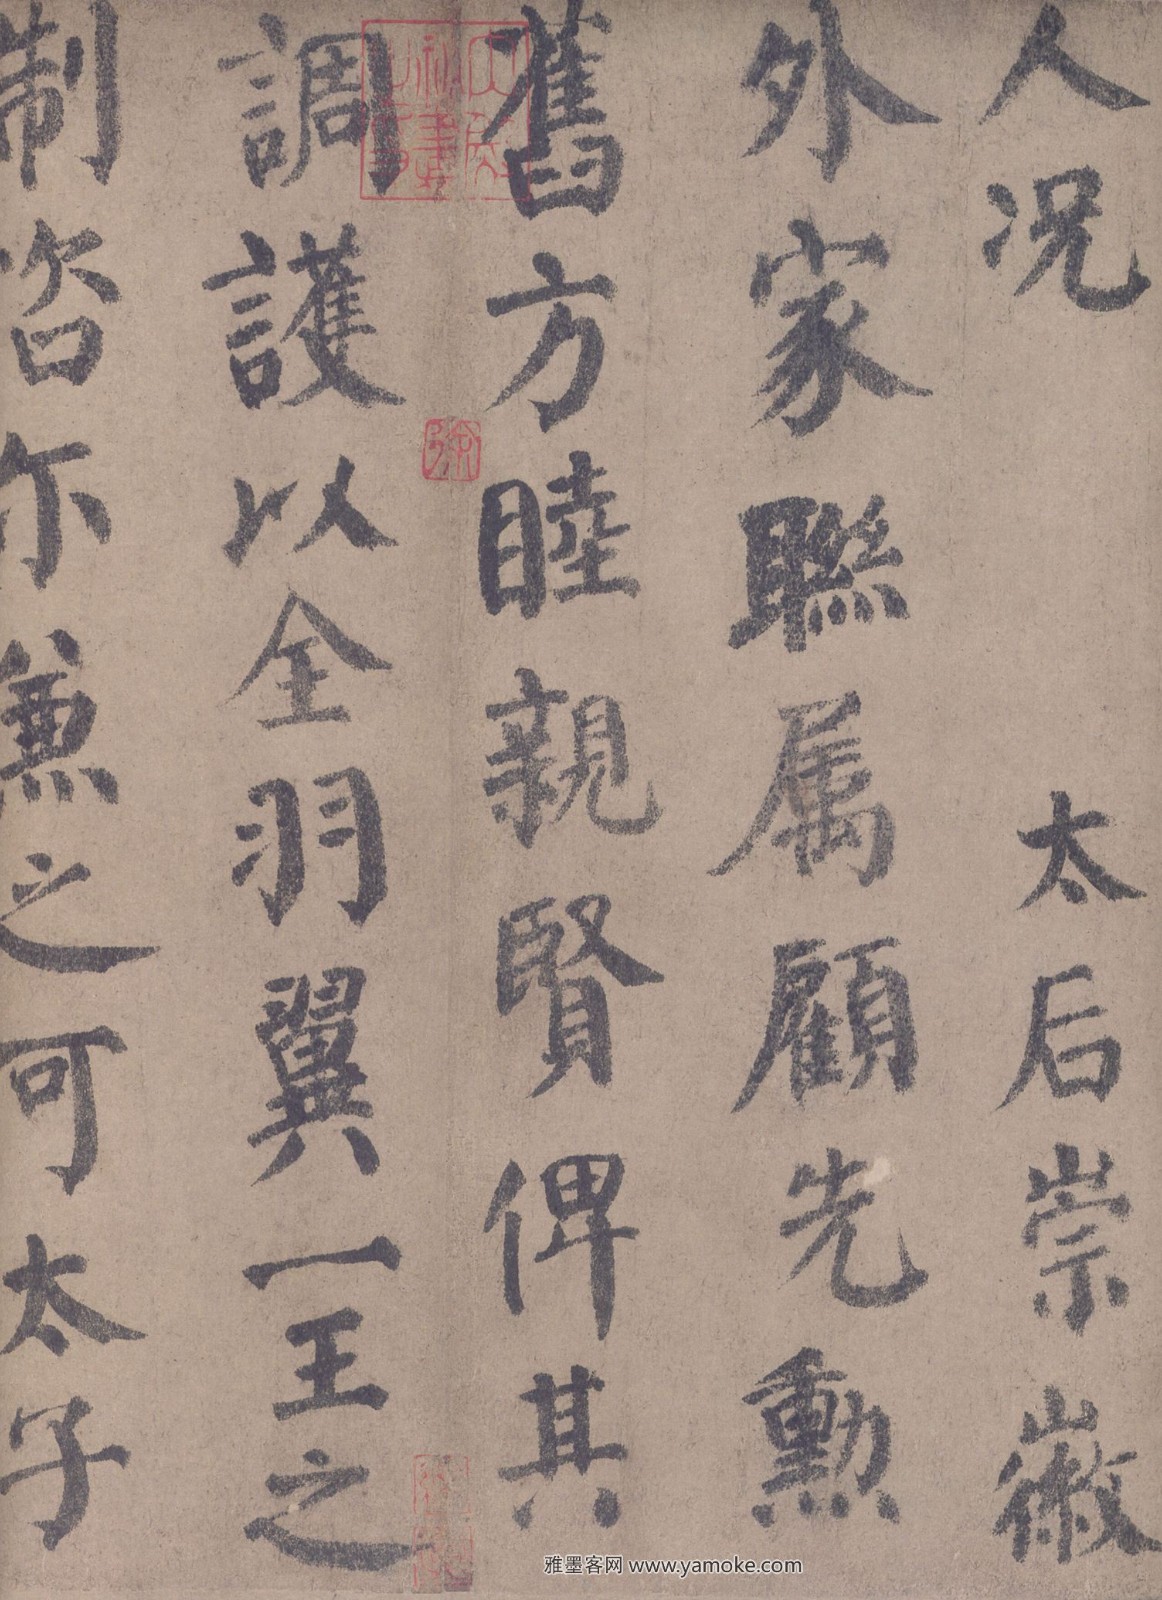 人况 太后崇徽
外家聯属顧先勲
舊方睦親賢俾其
調護以全羽翼一王之
制咨尓兼之可太子
雅墨客网 www.yamoke.com